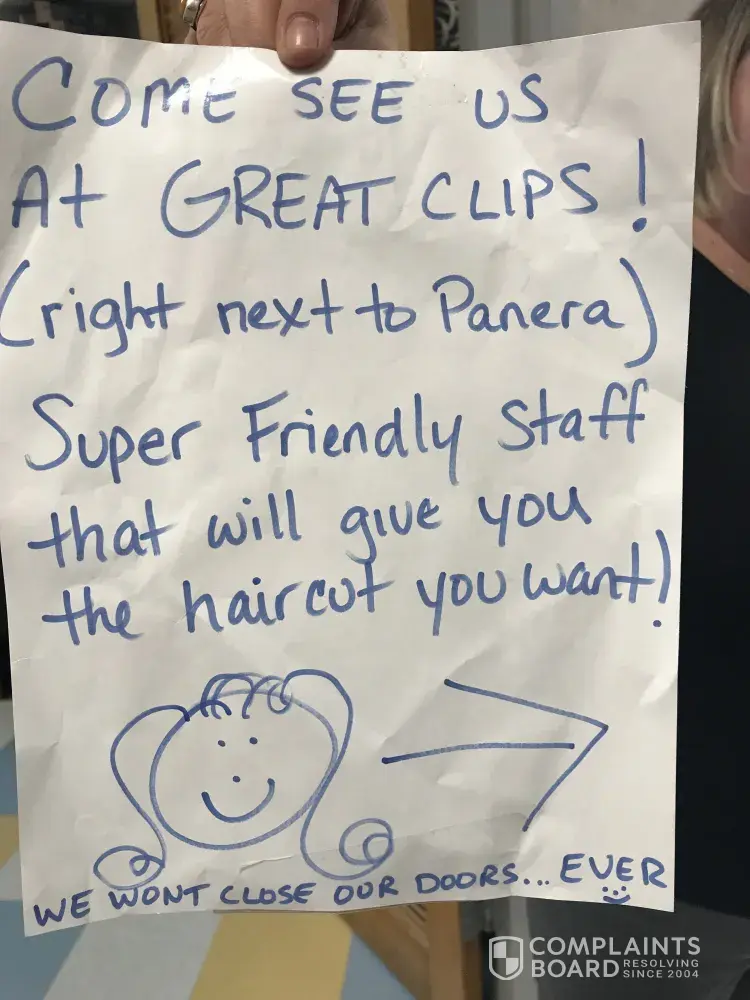 COME SEE US
At GREAT CLIPS!
(right next to Panera)
Super Friendly Staff
that will give you
the haircut you want!
WE WONT CLOSE OUR DOORS... EVER
COMPLAINTS
BOARD RESOLVING
SINCE 2004